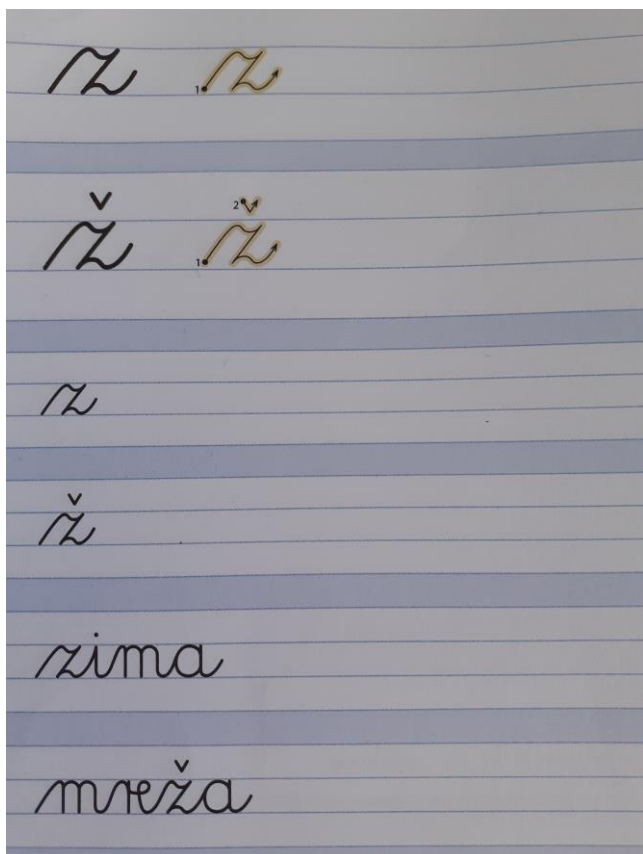 z 1 z
ž 1 2 ž
z
ž
zima
mreža